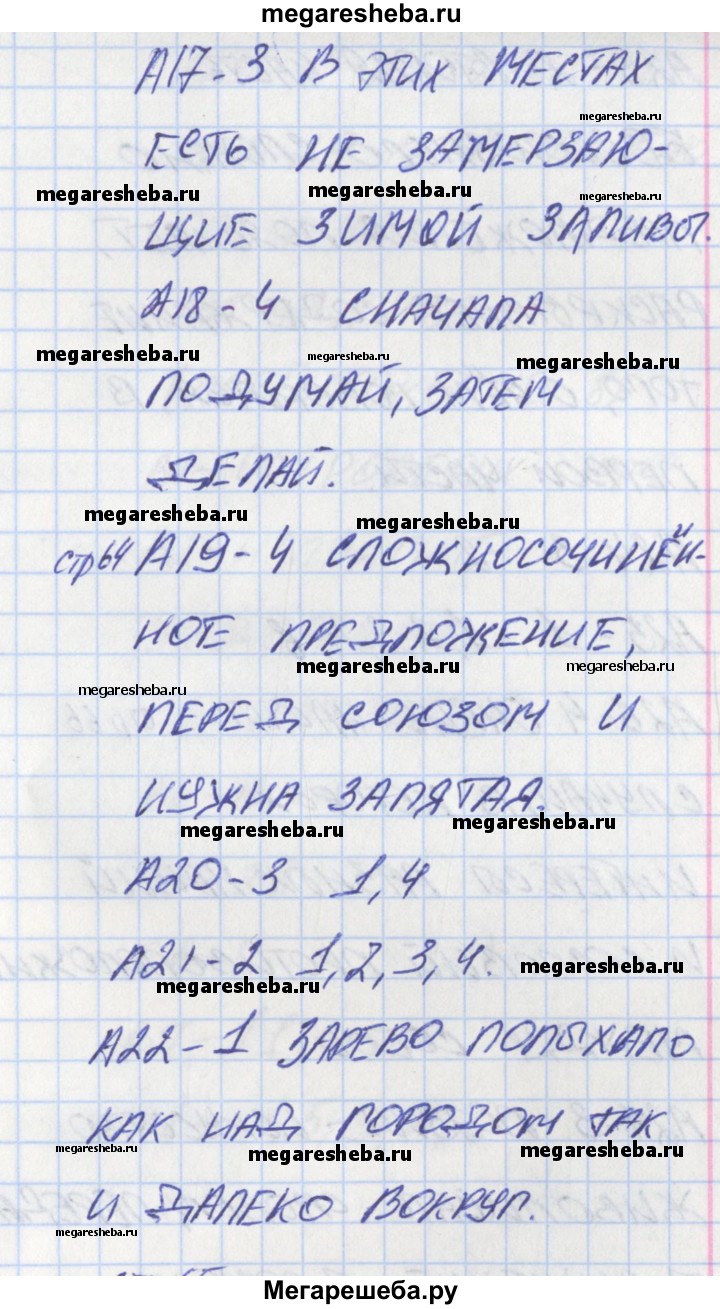 megaresheba.ru
А17-3 В ЭТИХ МЕСТАХ
megaresheba.ru
ЕСТЬ НЕ ЗАМЕРЗАЮ-
megaresheba.ru megaresheba.ru megaresheba.ru
ЩИЕ ЗИМОЙ ЗАЛИВЫ.
А18-4 СНАЧАЛА
megaresheba.ru megaresheba.ru megaresheba.ru
ПОДУМАЙ, ЗАТЕМ
ДЕЛАЙ.
megaresheba.ru megaresheba.ru
стр64 А19-4 СЛОЖНОСОЧИНЁН-
НОЕ ПРЕДЛОЖЕНИЕ,
megaresheba.ru megaresheba.ru
megaresheba.ru
ПЕРЕД СОЮЗОМ И
НУЖНА ЗАПЯТАЯ.
megaresheba.ru megaresheba.ru
А20-3 1,4
А21-2 1,2,3,4.
megaresheba.ru megaresheba.ru
А22-1 ЗАРЕВО ПОЛЫХАЛО
КАК НАД ГОРОДОМ ТАК
megaresheba.ru megaresheba.ru megaresheba.ru
И ДАЛЕКО ВОКРУГ.
megaresheba.ru
Мегарешеба.ру